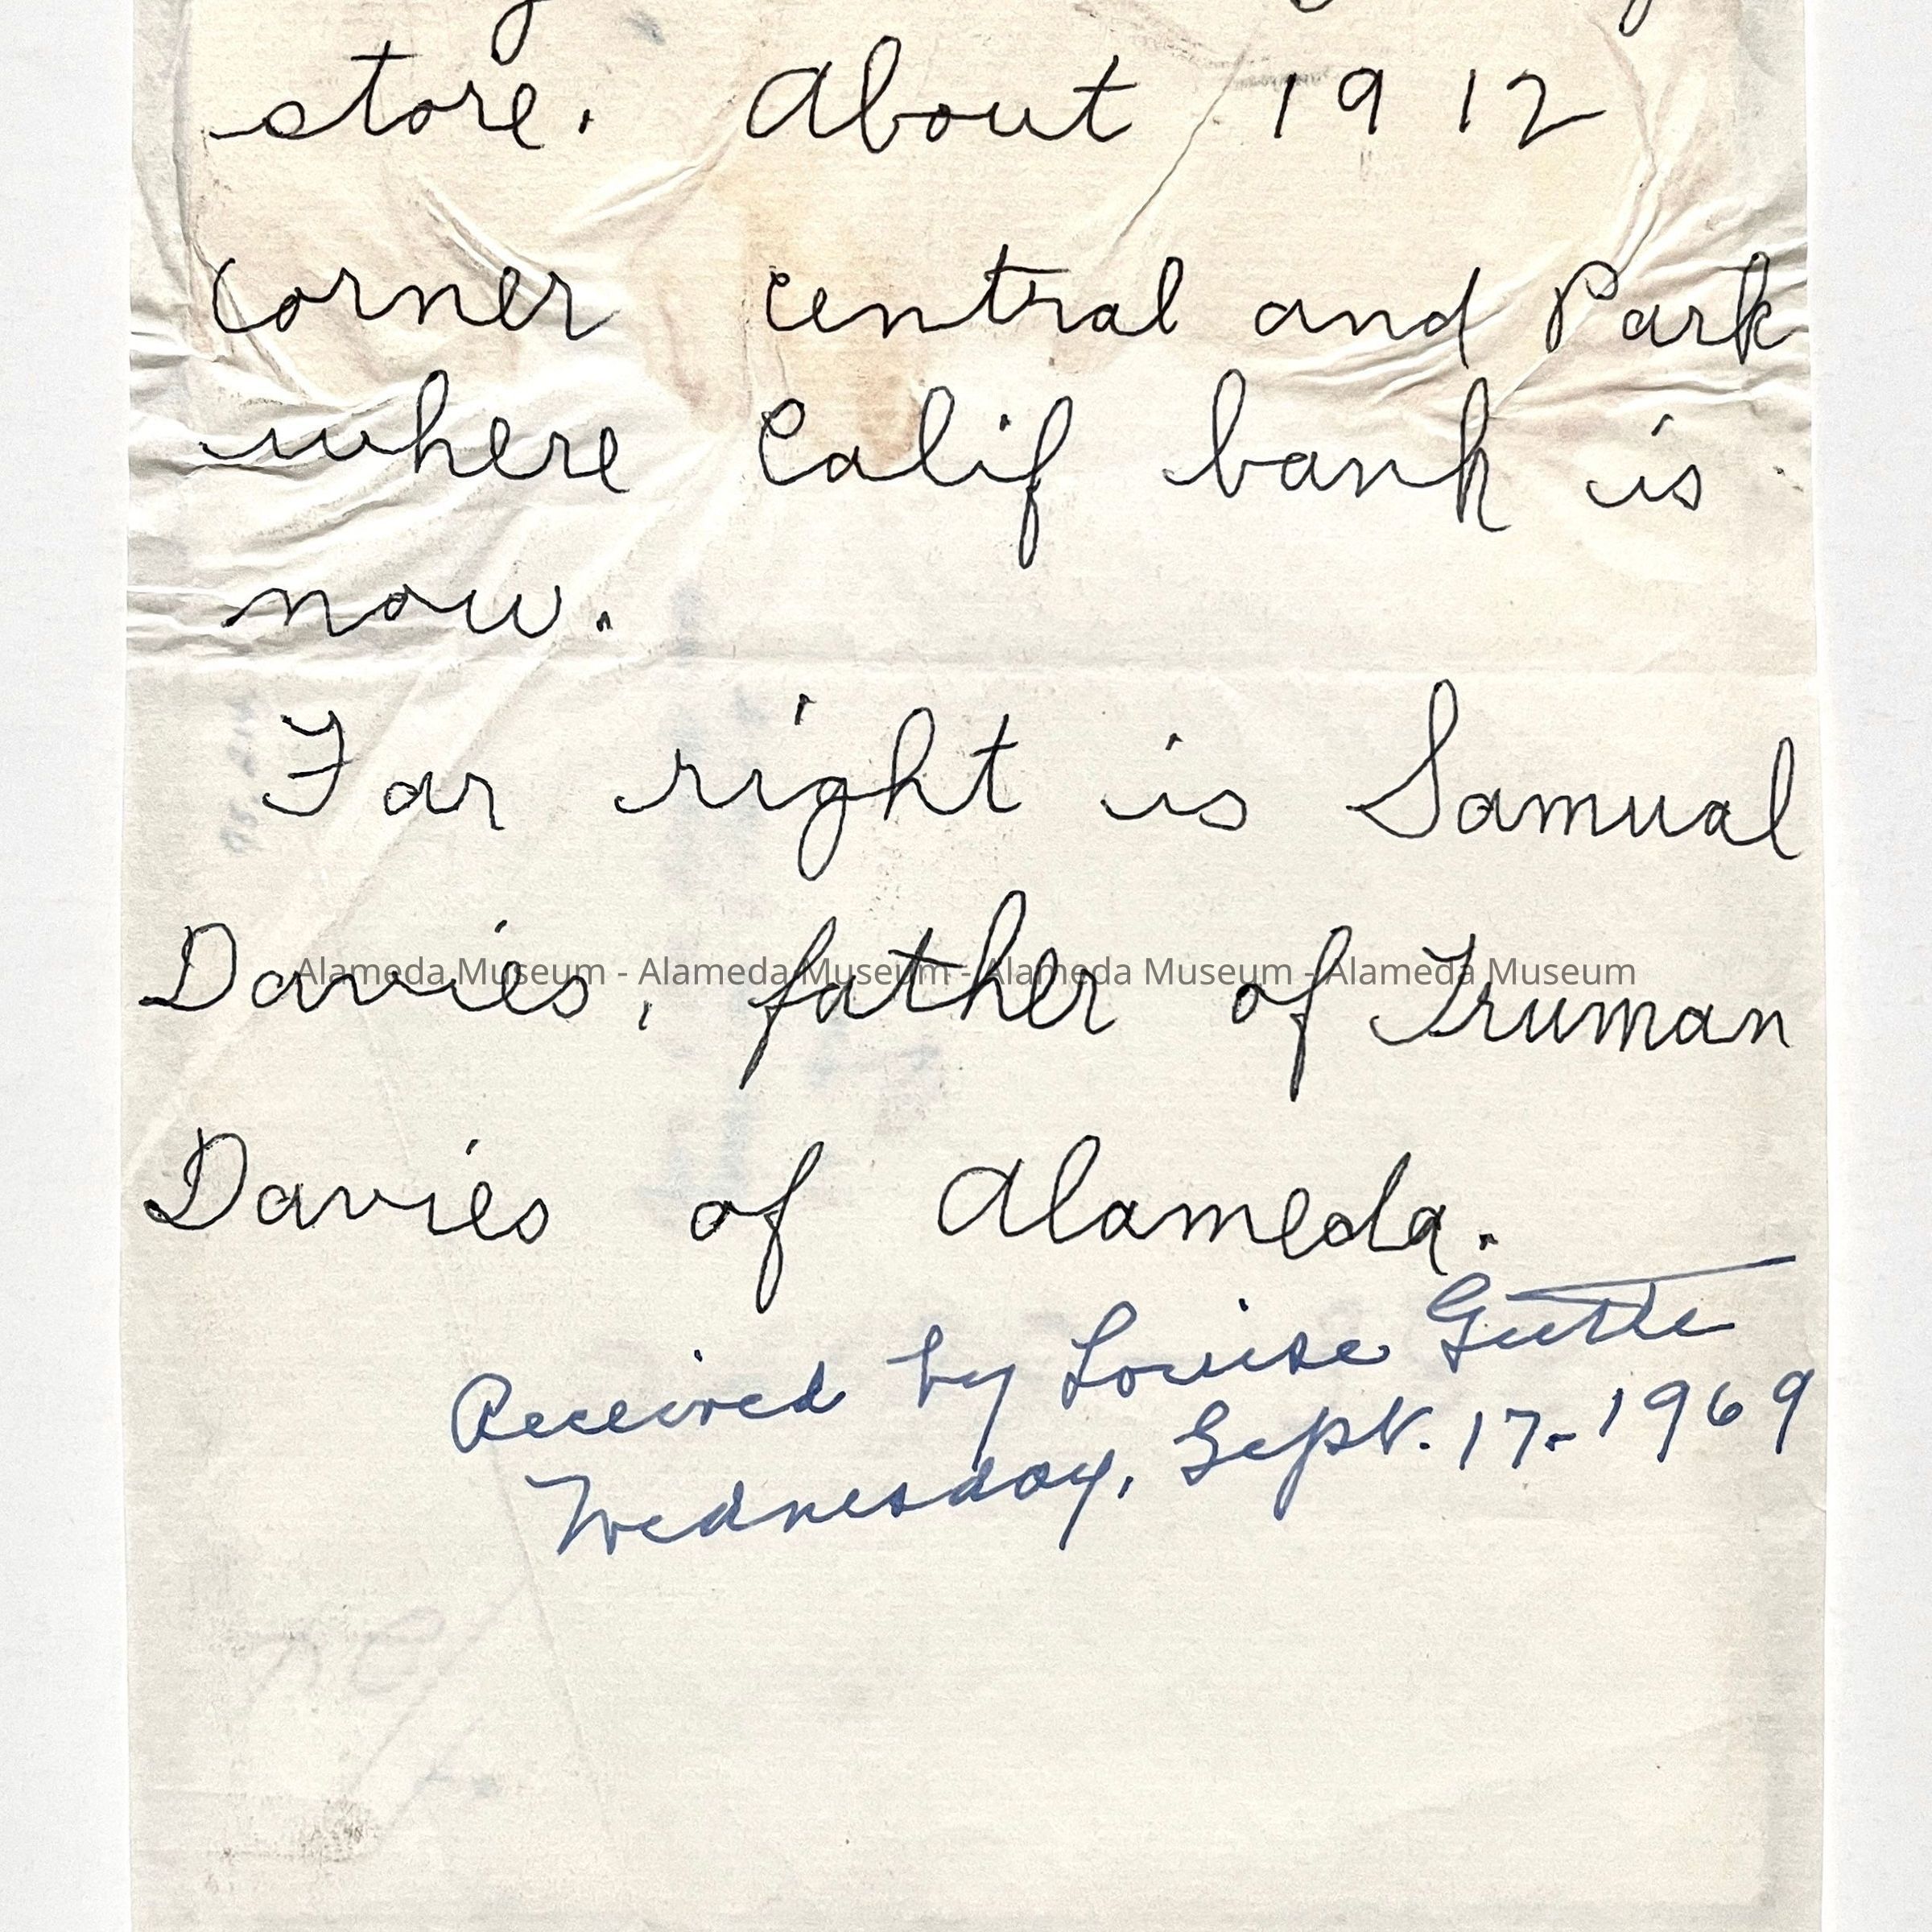 store. About 1912
corner central and Park
where Calif bank is
now.
Far right is Samual
Davies, father of Truman
Alameda Museum - Alameda Museum - Alameda Museum - Alameda Museum
Davies of Alameda.
Received by Louise
Wednesday, Sept. 17-1969